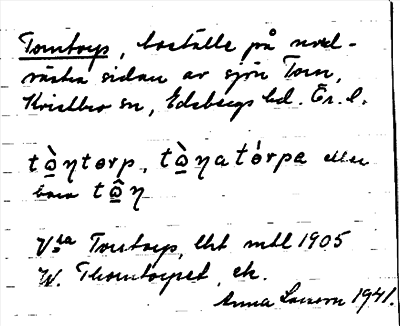 Torntorp, boställe på nord-
västra sidan av sjön Torn,
Kvistbro sn, Edsbergs hd. Ör. l.
tò̲ŋtorp, tò̲ŋatórpa eller
bara tô̲ŋ
V:ra Torntorp, lht mtl 1905
W. Thorntorpet, ek.
Anna 1941.